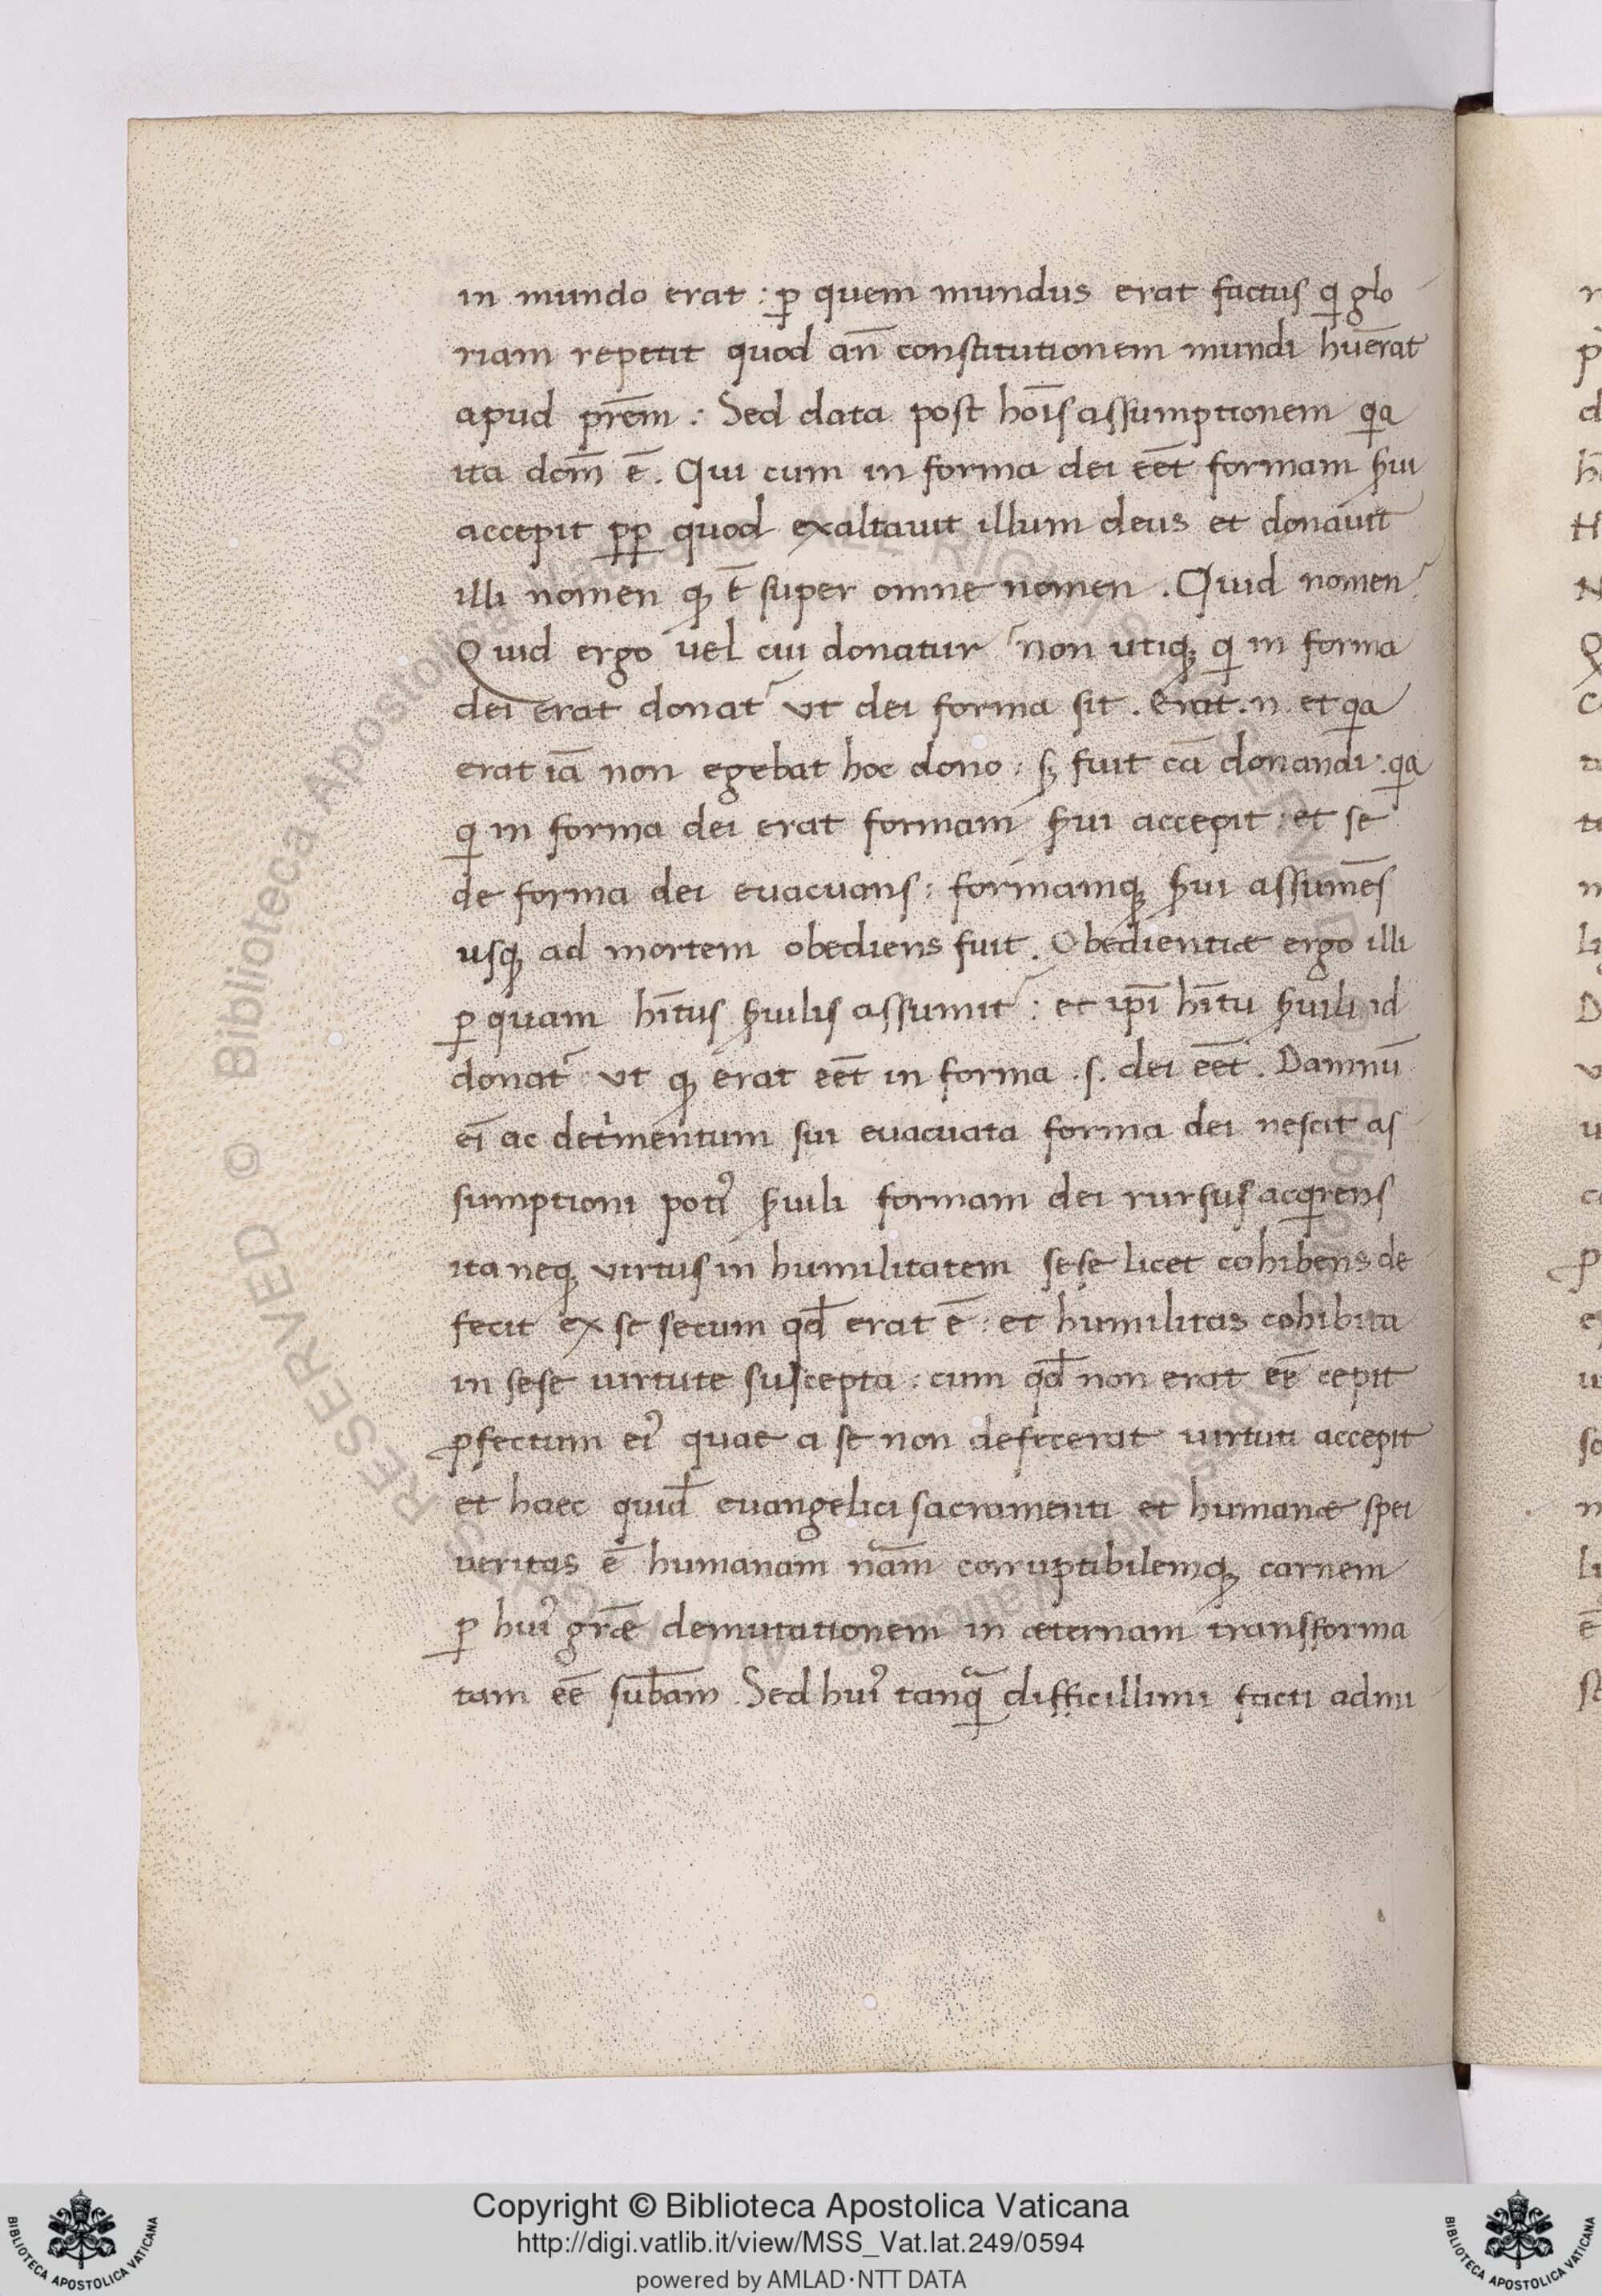 in mundo erat : ꝑ quem mundus erat factus q̇ glo
riam repetit quod an̄ constitutionem mundi hūerat
apud pr̄em : Sed data post hoīs assumptionem qa
ita dom̄ ē . Qui cum in forma dei eēt formam ẜui
accepit ꝓp quod exaltauit illum deus et donauit
illi nomen qꝫ ē super omne nomen . Quid nomen
Quid ergo uel cui donatur non utiqꝫ q in forma
dei erat donat᷑ ut dei forma sit . Erat . n . et qa
erat iā non egebat hoc dono : sꝫ fuit cā donandi : qa
q in forma dei erat formam ẜui accepit : et se
de forma dei euacuans : formamqꝫ ẜui assumēs
usqꝫ ad mortem obediens fuit . Obedientiæ ergo illi
ꝑ quam hītus ẜuilis assumit᷑ : et ip̄i hītu ẜuili id
donat᷑ ut qꝫ erat eēt in forma . s . dei eēt . Damnū
eī ac detͥmentum sui euacuata forma dei nescit as
sumptioni potiꝰ ẜuili formam dei rursus acqrens
ita neqꝫ virtus in humilitatem sese licet cohibens de
fecit ex se secum qđ erat ē : et humilitas cohibita
in sese uirtute suscepta : cum qđ non erat eē cepit
ꝓfectum eiꝰ quae a se non defecerat uirtuti accepit
et haec quiđ euangelici sacramenti et humanæ spei
ueritas ē humanam nāam corruptibilemqꝫ carnem
ꝑ huiꝰ gr̄æ demutationem in æternam transforma
tam eē sub̄am . Sed huiꝰ tanq̄ difficillimi facti admi
Copyright © Biblioteca Apostolica Vaticana
http://digi.vatlib.it/view/MSS_Vat.lat.249/0594
powered by AMLAD·NTT DATA
BIBLIOTECA APOSTOLICA VATICANA
BIBLIOTECA APOSTOLICA VATICANA